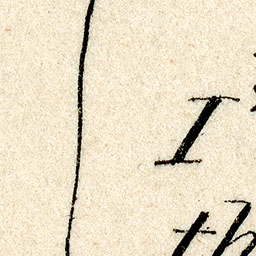 I
th